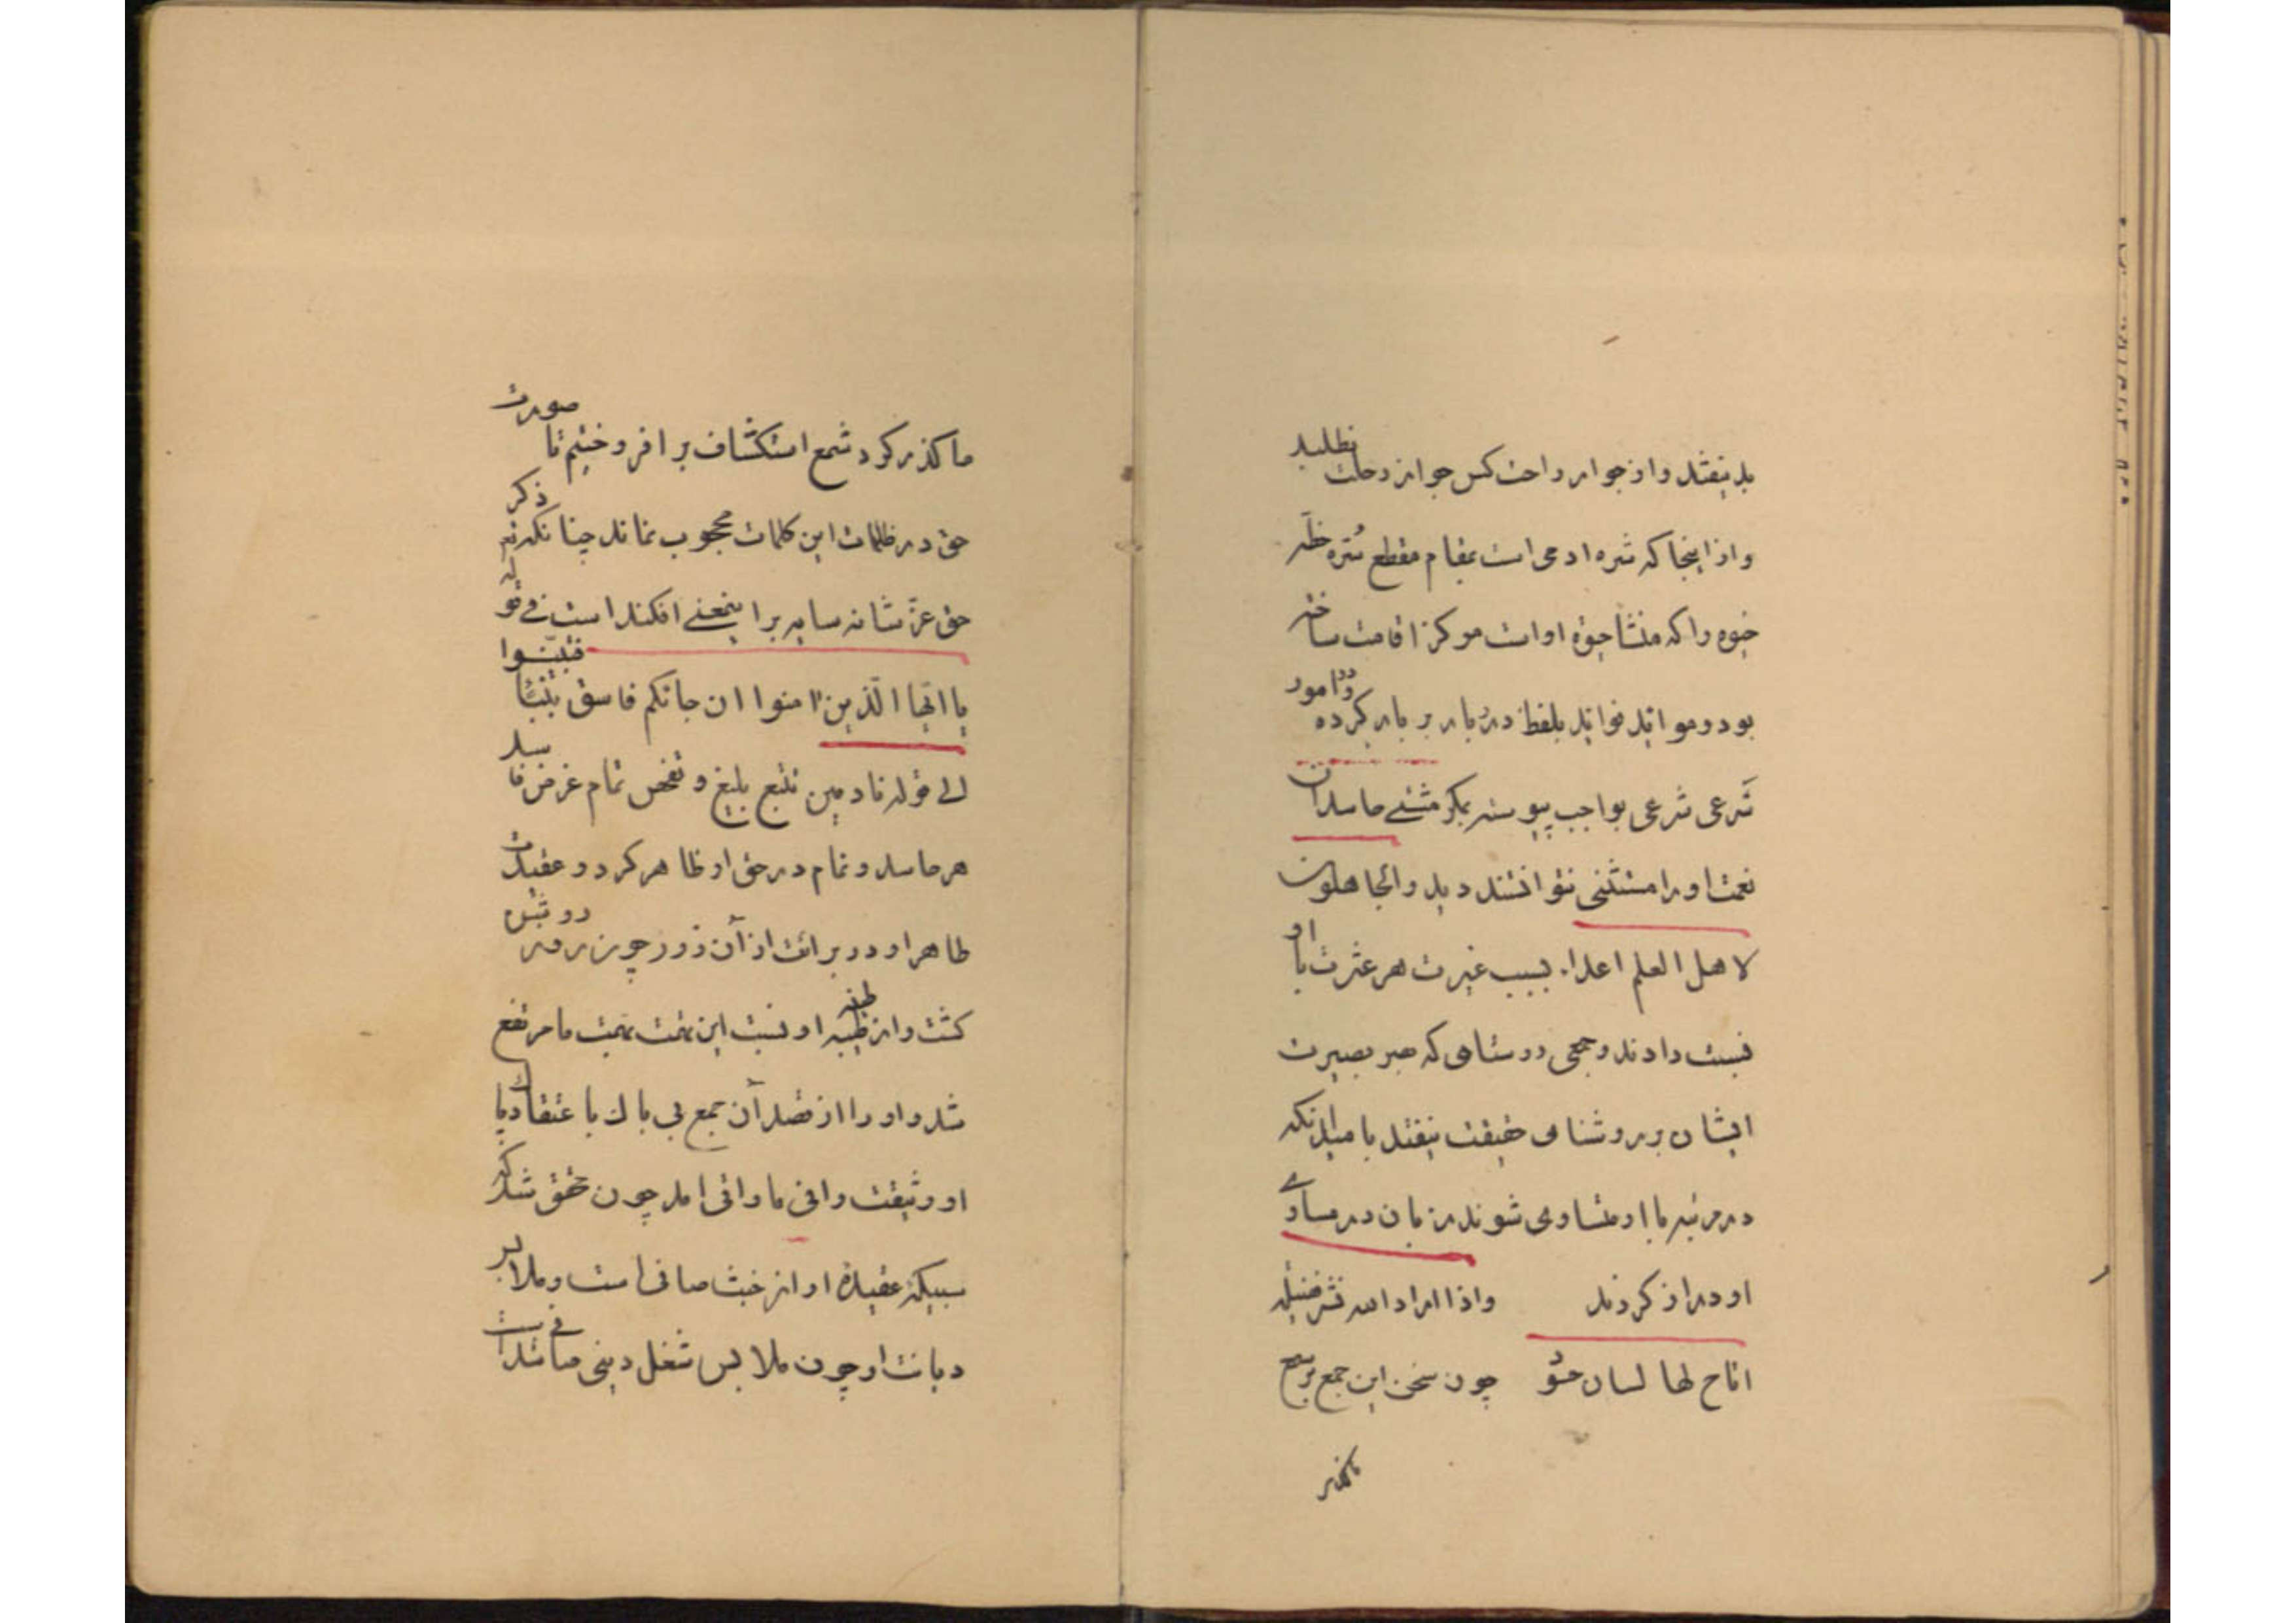 بد نیفتد و از جوار راحت کس جواز رحلت نطلبد
و از اینجا که شره ادمی است بمقام مقطع سره خطه
خوه را که منشا حیوة او است مرکز اقامت ساخته
بود و موائد فوائد بلفظ درر بار بر بار کرده و در امور
شرعی شرعی بواجب پیوسته بکر مثنی حاسدان
نعمت او را مستثنی نتوانستند دید و الجاهلون
لاهل العلم اعداء بسبب غیرت هر عثرت با او
نسبت دادند و جمعی روستامی که صبر بصیرت
ایشان بر روشنامی حقیقت نیفتد بامید آنکه
در مرتبه با او متساوی شوند زبان در مساوی
او دراز کردند واذا اراد الله نشر فضیلة
اتاح لها لسان حسود چون سخن این جمع بر سمع
ماکذر
ما کذر کرد شمع استکشاف بر افروختیم تا صورت
حق در ظلمات این کلمات محجوب نماند چنانکه ذکر
حق عز شانه سایه بر اینمعنی افکنده است فی قوله
یا ایها الذین امنوا ان جائکم فاسق بنبأ فتبینوا
الی قوله نادمین تتبع بلیغ و تفحص تمام غرض فاسد
هر حاسد و نمام در حق او ظاهر کرد و عقیدت
طاهر او در برائت از آن زور چون روز روشن
کشت و از طینه او نسبت این تهمت بهمت ما مرتفع
شد و او را از قصد آن جمع بی باک با عتقاد پاک
او وثیقت وافی ما واقی امد چون محقق شد که
سبیکه عقیدة او از خبث صافی است و ملابس
دیانت او چون ملابس شغل دینی ما شد